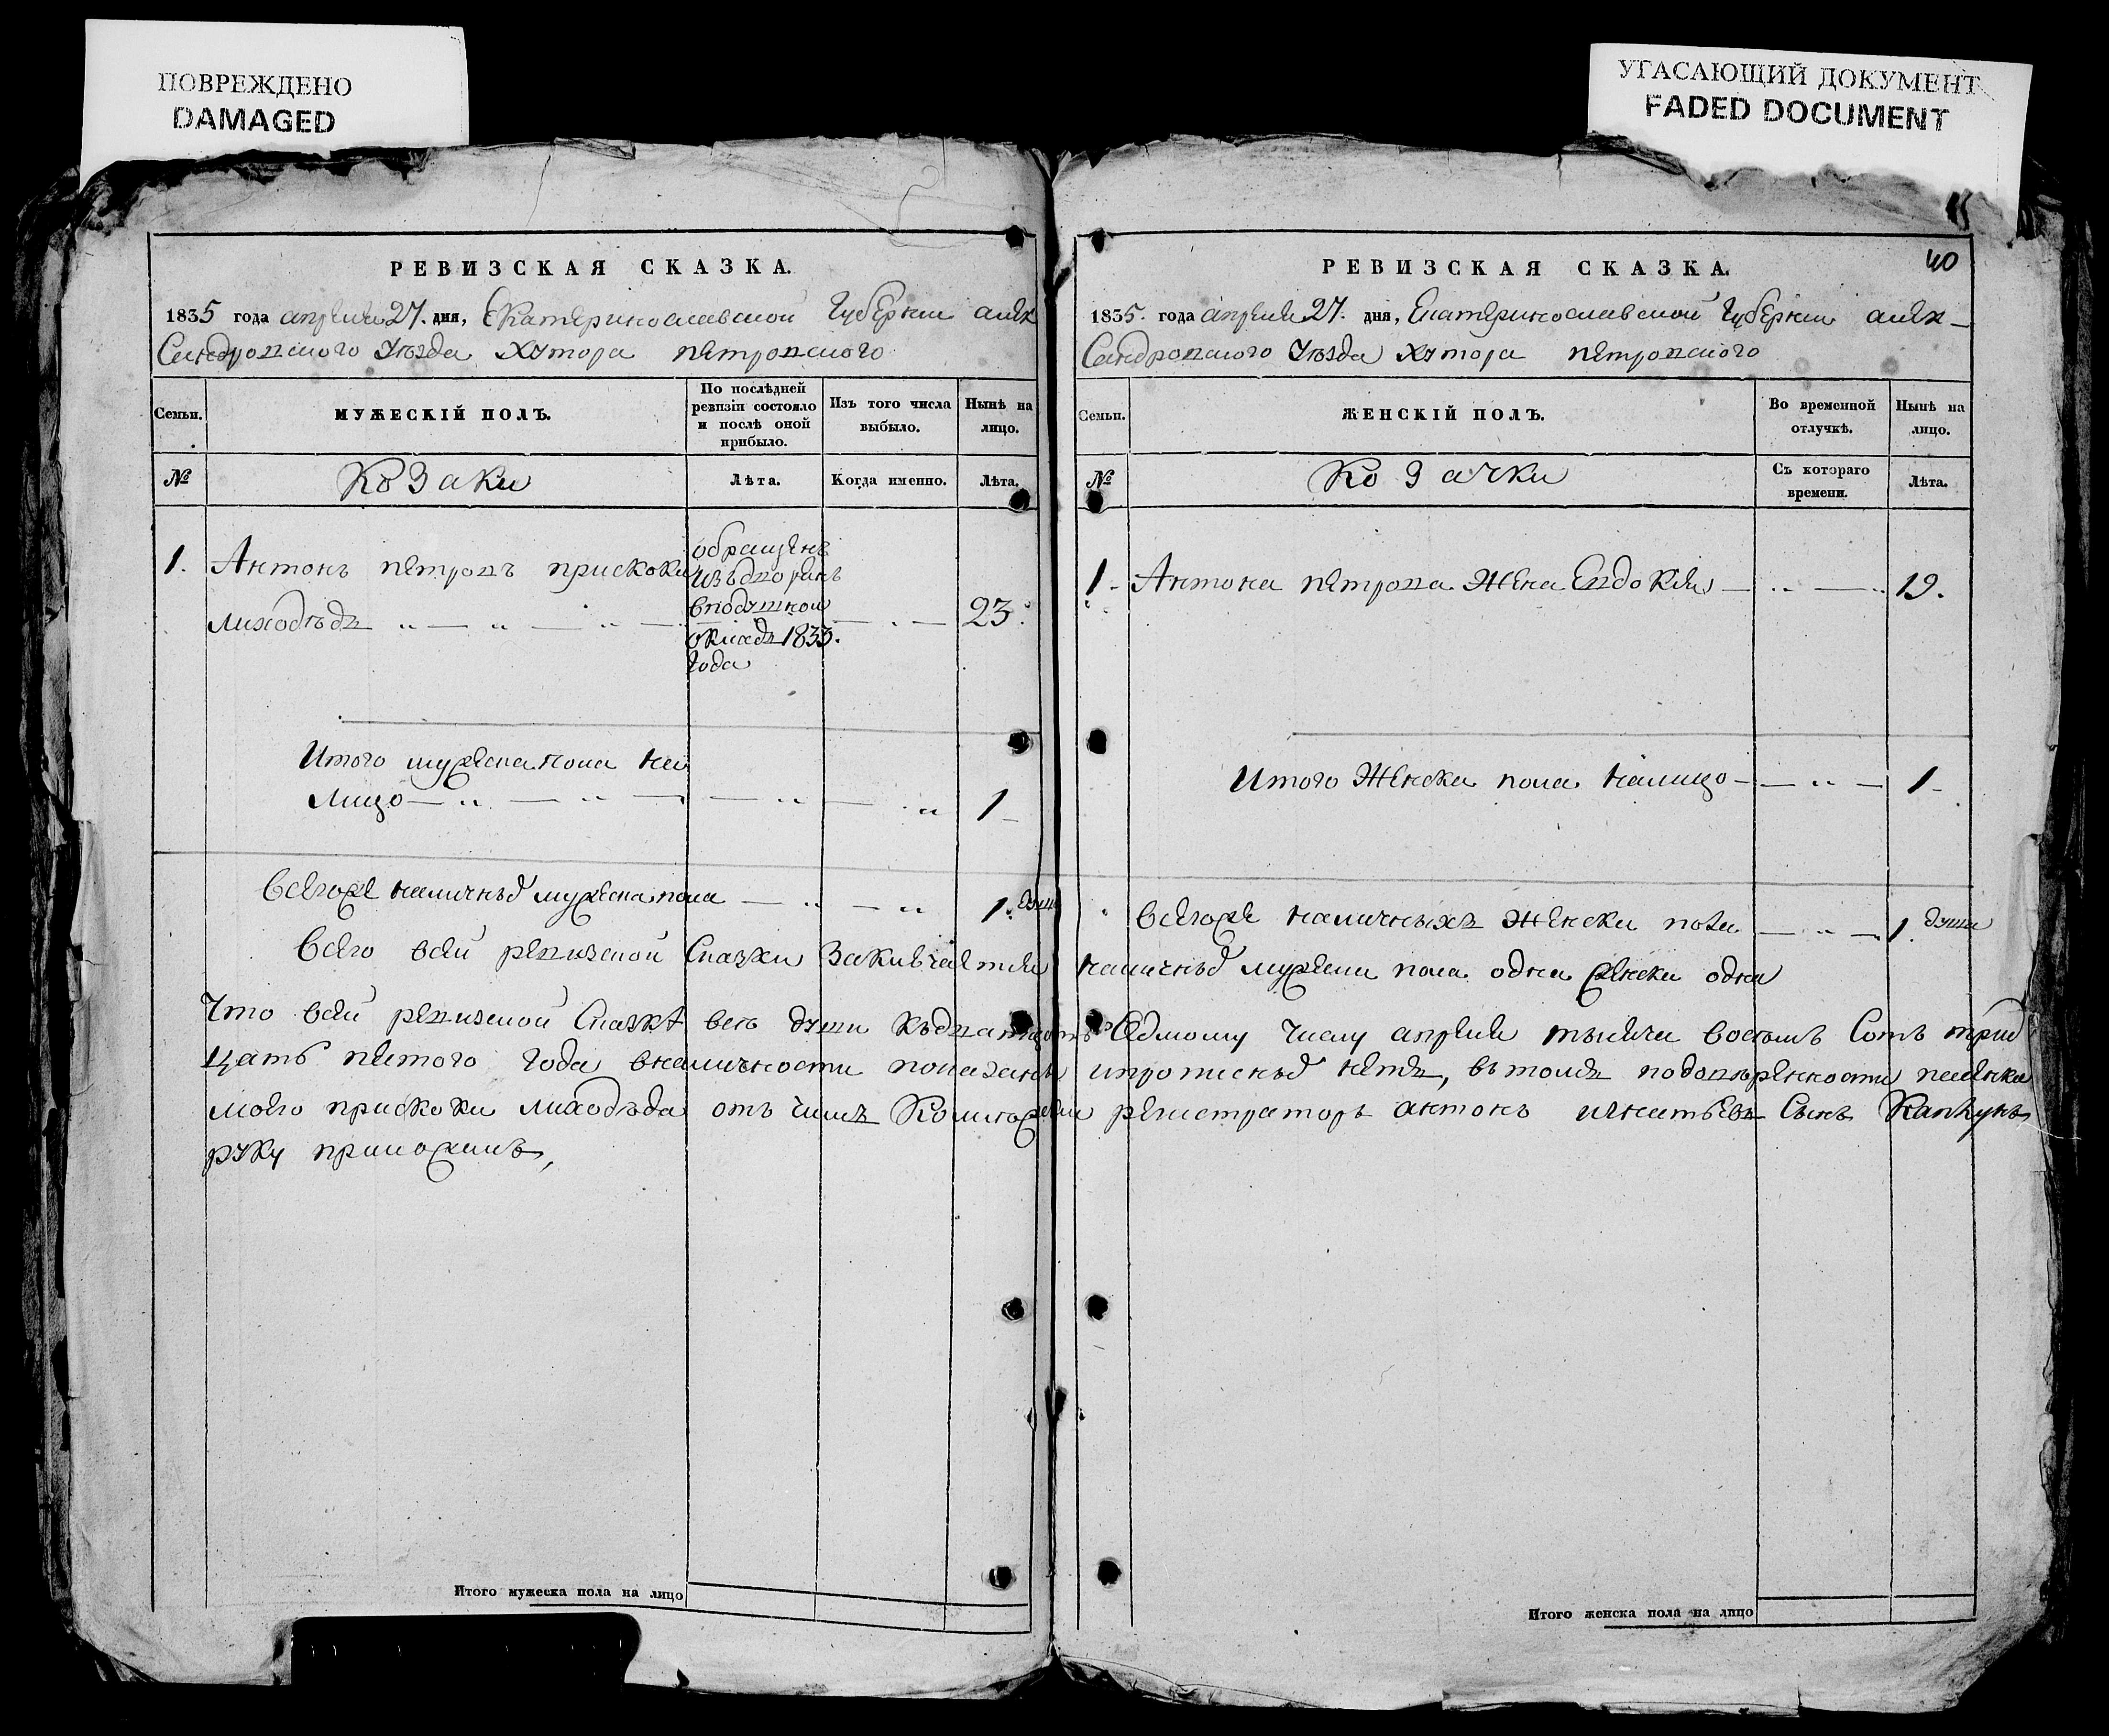 ПОВРЕЖДЕНО
DAMAGED
УГАСАЮЩИЙ ДОКУМЕНТ
FADED DOCUMENT
РЕВИЗСКАЯ СКАЗКА.
1835 года апреля 27. дня, Екатеринославской Губернии алек
Сандровского Уезда Хутора петровского
Семьи.
МУЖЕСКІЙ ПОЛЪ.
По послѣдней
ревизіи состояло
и послѣ оной
прибыло.
Изъ того числа
выбыло.
Нынѣ на
лицо.
№
Козаки
Лѣта.
Когда именно.
Лѣта.
1. Антонъ петровъ прискоки
лиходѣдъ
обращенъ
вподушной
окладъ 1833.
года
23.
Итого мужеска пола на
лицо 1
Всегоже наличныхъ мужеска пола 1. душа
40
РЕВИЗСКАЯ СКАЗКА.
1835. года апреля 27. дня, Екатеринославской Губернии алек-
Сандровского Уезда Хутора петровского
Семьи.
ЖЕНСКІЙ ПОЛЪ.
Во временной
отлучкѣ.
Нынѣ на
лицо.
№
Козачки
Съ котораго
времени.
Лѣта.
1. Антона петрова Жена Евдокия 19.
Итого Женска пола налицо 1
всегоже наличныхъ женска пола 1. душа
Всего всей ревизской Сказки наличныхъ мужеска пола одна женска одна
Что всей ревизской Сказке всѣ души Седмому числу апреля тысяча восемь Сотъ трид
цать пятого года вналичности показаны ипрописныхъ нетъ, втомъ
моего прискоки лиходѣда отъ регистраторъ антонъ игнатьевъ Сынъ
руку приложилъ,
Итого мужеска пола на лицо
Итого женска пола на лицо